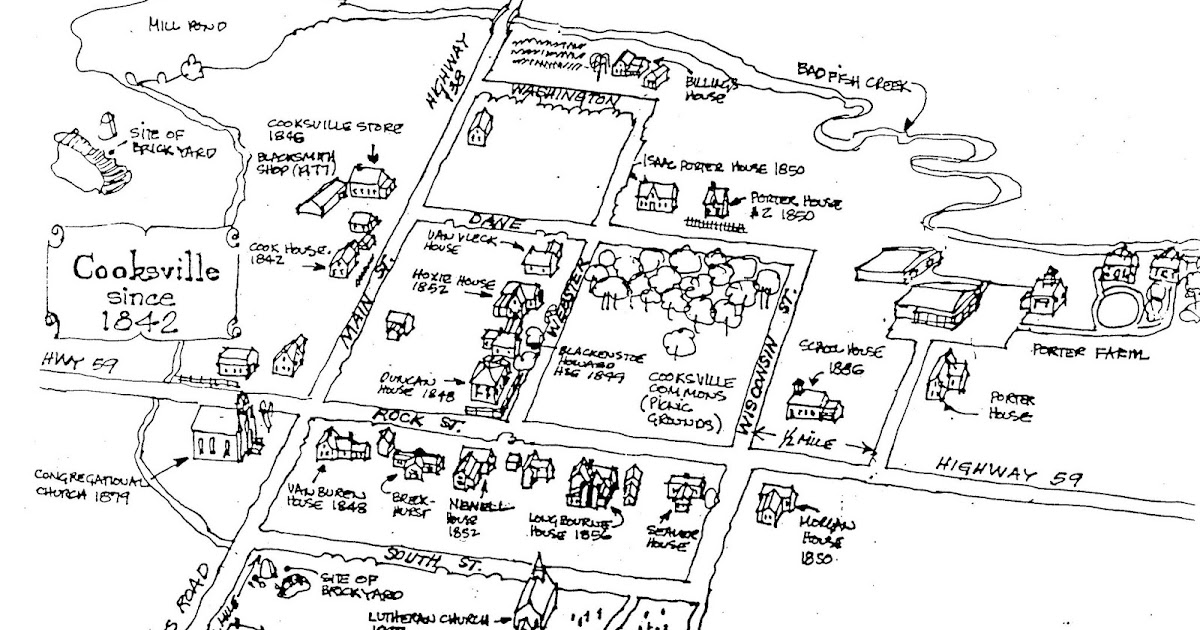 MILL POND
HIGHWAY
138
WASHINGTON
BILLINGS
HOUSE
BADFISH CREEK
SITE OF
BRICKYARD
COOKSVILLE STORE
1846
BLACKSMITH
SHOP (1977)
ISAAC PORTER HOUSE 1850
PORTER HOUSE
#2 1850
Cooksville
since
1842
COOK HOUSE
1842
DANE
VAN VLECK
HOUSE
HOXIE HOUSE
1852
MAIN ST.
WEBSTER
WISCONSIN ST.
HWY 59
DUNCAN
HOUSE 1848
BLACKENSTOE
HOWARD
HSE 1849
COOKSVILLE
COMMONS
(PICNIC
GROUNDS)
SCHOOL HOUSE
1886
PORTER FARM
PORTER
HOUSE
ROCK ST.
1/2 MILE
HIGHWAY 59
CONGREGATIONAL
CHURCH 1879
VAN BUREN
HOUSE 1848
BRICK-
HURST
NEWELL
HOUSE
1852
LONGBOURNE
HOUSE 1856
SEAVER
HOUSE
MORGAN
HOUSE
1850
SOUTH ST.
SITE OF
BRICKYARD
ROAD
LUTHERAN CHURCH